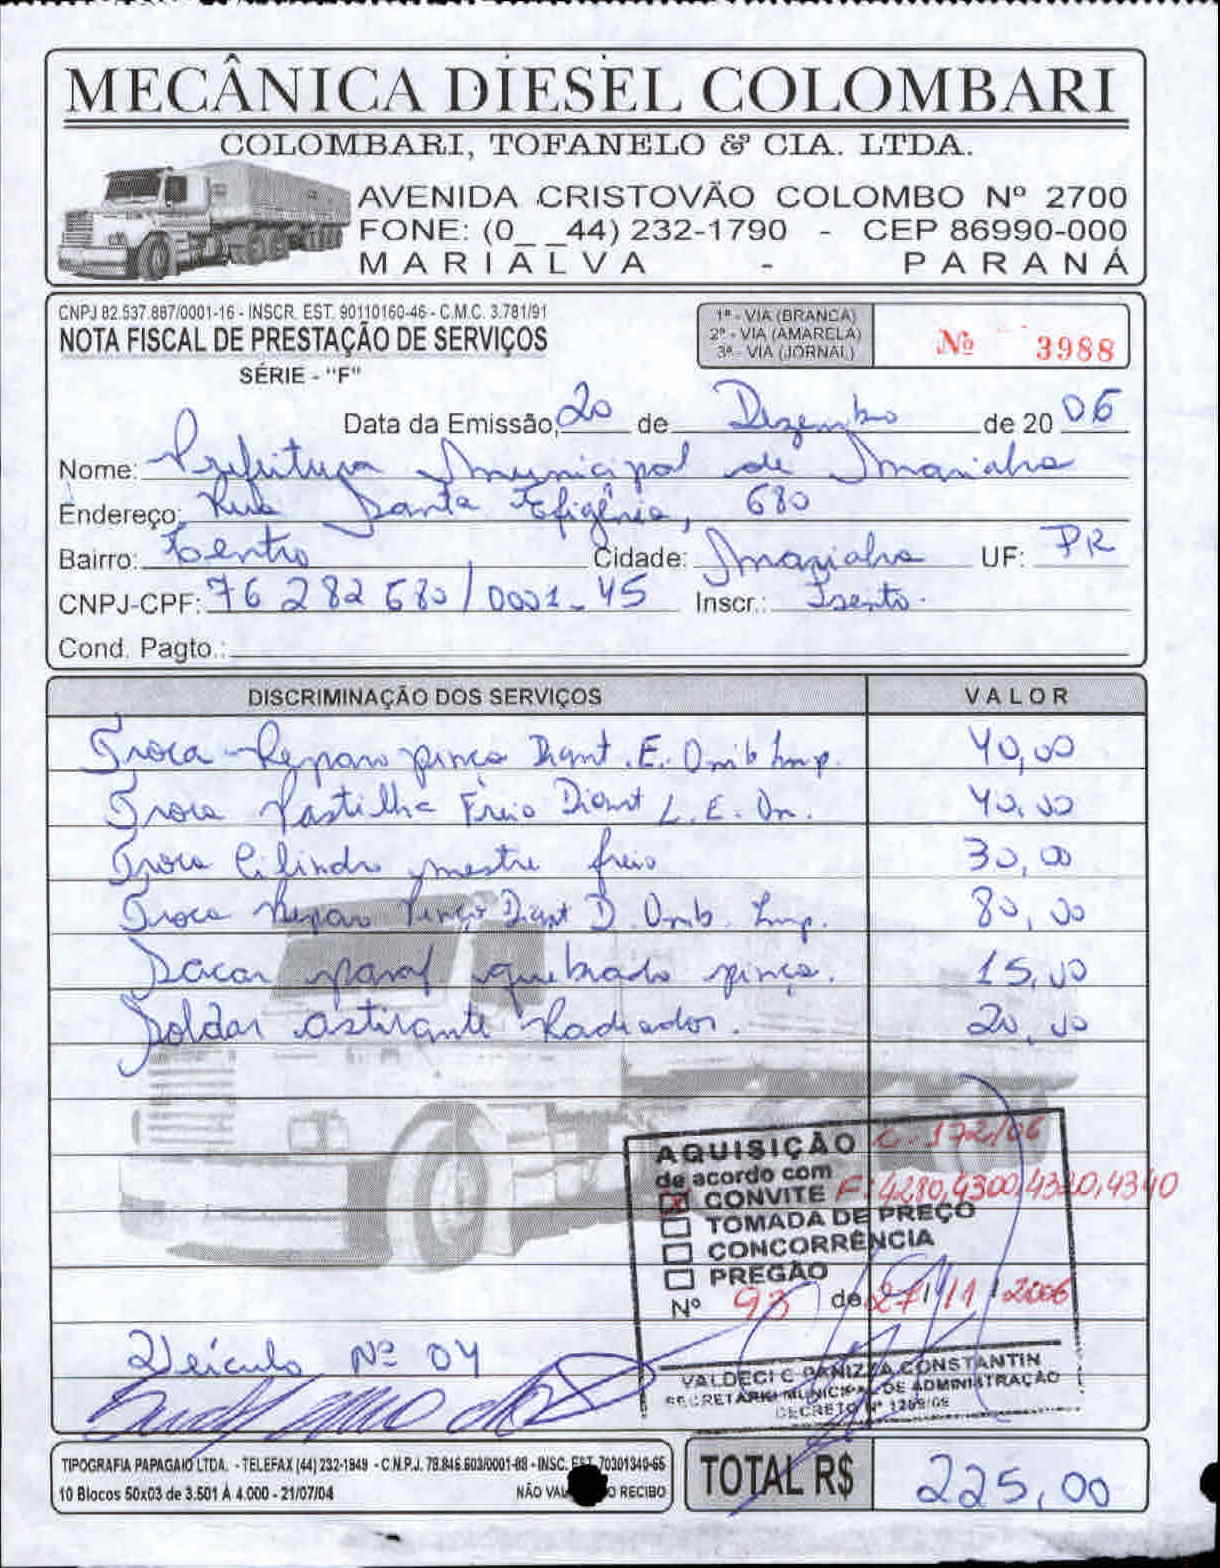 MECÂNICA DIESEL COLOMBARI
COLOMBARI, TOFANELO & CIA. LTDA.
AVENIDA CRISTOVÃO COLOMBO Nº 2700
FONE: (0_ _44) 232-1790 - CEP 86990-000
MARIALVA - PARANÁ
CNPJ 82.537.887/0001-16 - INSCR. EST. 90110160-46 - C.M.C. 3.781/91
NOTA FISCAL DE PRESTAÇÃO DE SERVIÇOS
SÉRIE - "F"
1ª - VIA (BRANCA)
2ª - VIA (AMARELA)
3ª - VIA (JORNAL)
Nº 3988
Data da Emissão, 20 de Dezembro de 20 06
Nome: Prefeitura Municipal de Marialva
Endereço: Rua Santa Efigênia, 680
Bairro: Centro Cidade: Marialva UF: PR
CNPJ-CPF: 76 282 680/0001-45 Inscr.: Isento.
Cond. Pagto.:
DISCRIMINAÇÃO DOS SERVIÇOS VALOR
Troca Reparo pinça Diant. E. Onib Imp. 40,00
Troca Pastilha Freio Diant L. E. On. 40,00
Troca Cilindro mestre freio 30,00
Troca Reparo Pinça Diant D. Onib. Imp. 80,00
Sacar paraf quebrado pinça. 15,00
Soldar astirante Radiador. 20,00
AQUISIÇÃO C-172/06
de acordo com
CONVITE F: 4280,4300,4320,4340
TOMADA DE PREÇO
CONCORRÊNCIA
PREGÃO
Nº 93 de 27/11/2006
Veículo Nº 04
VALDECI C PANIZZA CONSTANTIN
SECRETÁRIO MUNICIPAL DE ADMINISTRAÇÃO
DECRETO Nº
TIPOGRAFIA PAPAGAIO LTDA. - TELEFAX (44) 232-1949 - C.N.P.J. 78.846.603/0001-88 - INSC. EST 70301340-65
10 Blocos 50x03 de 3.501 À 4.000 - 21/07/04 NÃO VAL O RECIBO
TOTAL R$ 225,00